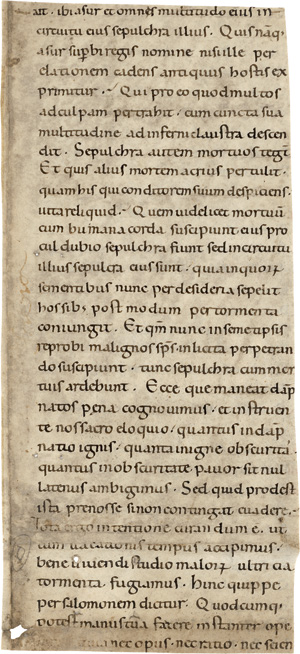 ait. ibi asur et omnes multitudo eius in
circuitu eius sepulchra illius. Quis namq;
asur supbi regis nomine nisi ille per
elationem cadens antiquus hostis ex
primitur. Qui pro eo quod multos
ad culpam pertrahit. cum cuncta sua
multitudine ad inferni claustra descen
dit. Sepulchra autem mortuos tegunt.
Et quis alius mortem acrius pertulit.
quam his qui conditorem suum despiciens.
vita reliquid. Quem videlicet mortuū
cum humana corda suscipiunt eius pro
cul dubio sepulchra fiunt sed in circuitu
illius sepulcra eius sunt. quia in quorū
se mentibus nunc per desideria sepelit
hos sibi post modum per tormenta
coniungit. Et qm̄ nunc in semetipsis
reprobi malignos sp̄s. inlicita perpetran
do suscipiunt. tunc sepulchra cum mor
tuis ardebunt. Ecce que maneat dāp
natos pena cognovimus. et instruen
te nos sacro eloquio. quantus in dāp
natio ignis. quanta in igne obscuritas.
quantus in obscuritate pavor sit nul
latenus ambigimus. Sed quid prodest
ista prenosse si non contingat evadere.
Tota ergo intentione curandum ē. ut
cum vacationis tempus accipimus.
bene vivendi studio malorū ultricia
tormenta fugiamus. Hinc quippe
per salomonem dicitur. Quodcumq;
potest manus tua facere instanter ope
quia nec opus. nec ratio. nec scien